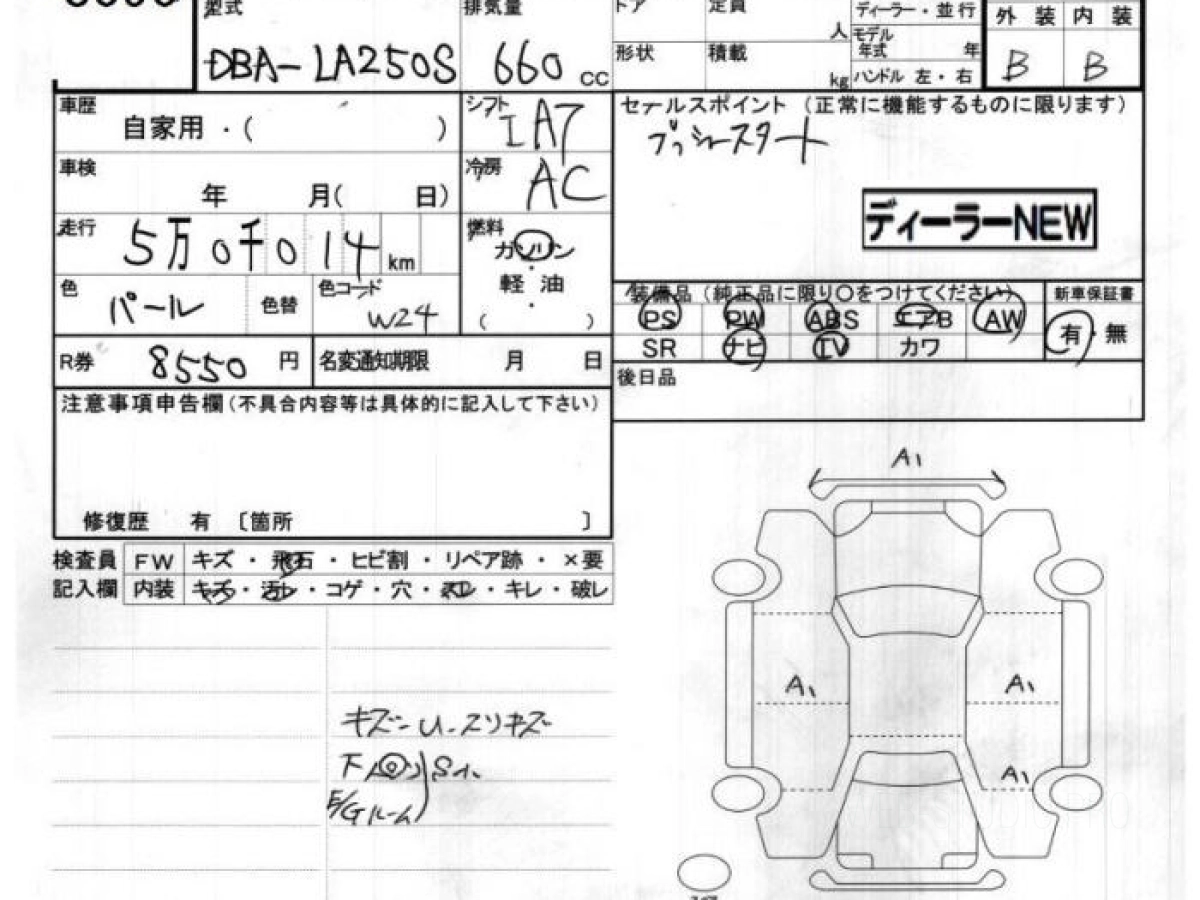 型式 排気量 ドア 定員 人 ディーラー・並行 外装 内装
DBA-LA250S 660 cc モデル年式 年 B B
形状 積載 kg ハンドル 左・右
車歴 自家用・( ) シフト IA7 セールスポイント (正常に機能するものに限ります)
プッシュスタート
車検 年 月( 日) 冷房 AC
ディーラーNEW
走行 5万0千014km 燃料 ガソリン
軽油
( )
色 パール 色替 色コード W24
装備品(純正品に限り○をつけてください) 新車保証書
PS PW ABS エアB AW 有・無
SR ナビ TV カワ
R券 8550円 名変通知期限 月 日
後日品
注意事項申告欄(不具合内容等は具体的に記入して下さい)
修復歴 有 〔箇所 〕
検査員 FW キズ・飛石・ヒビ割・リペア跡・×要
記入欄 内装 キズ・汚レ・コゲ・穴・スレ・キレ・破レ
キズ-U.スリキズ
下
E/Gルーム
A1
A1 A1
A1